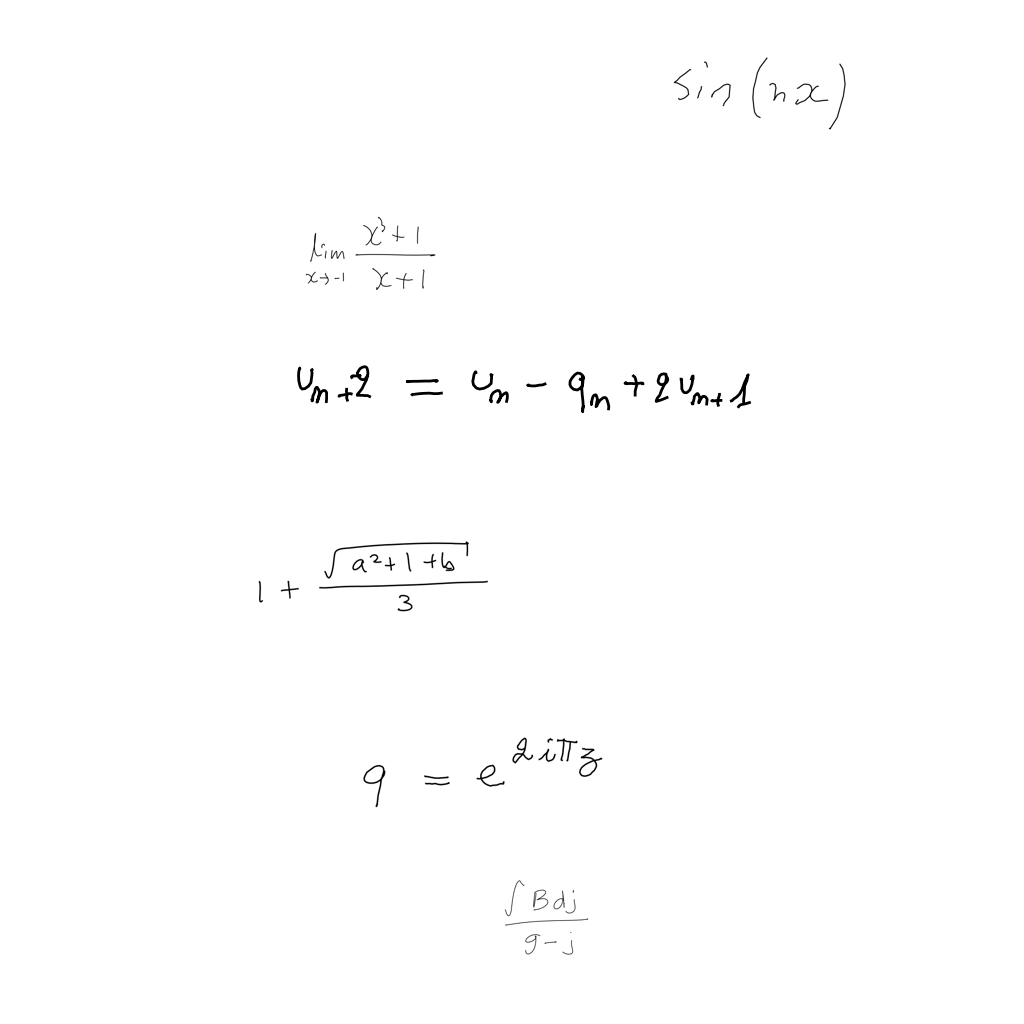 \sin(nx)
\lim_{x \to -1} \frac{x^3+1}{x+1}
u_{n+2} = u_n - q_n + 2u_{n+1}
1 + \frac{\sqrt{a^2+1+b}}{3}
q = e^{2i\pi z}
\frac{\int B dj}{g-j}